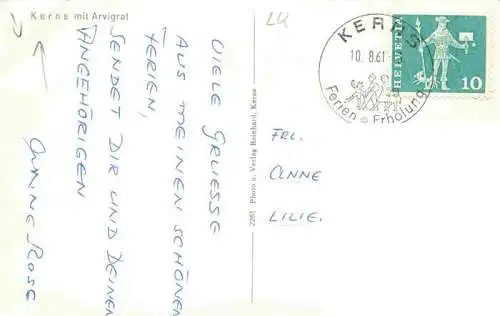 Kerns mit Arvigrat
VIELE GRUESSE
AUS MEINEN SCHÖNEN
FERIEN,
SENDET DIR UND DEINEN
ANGEHÖRIGEN
ROSE
2261 Photo u. Verlag Reinhard, Kerns
LU
KERNS
10. 8.61
Ferien Erholung
HELVETIA
10
FRL.
ANNE
LILIE.